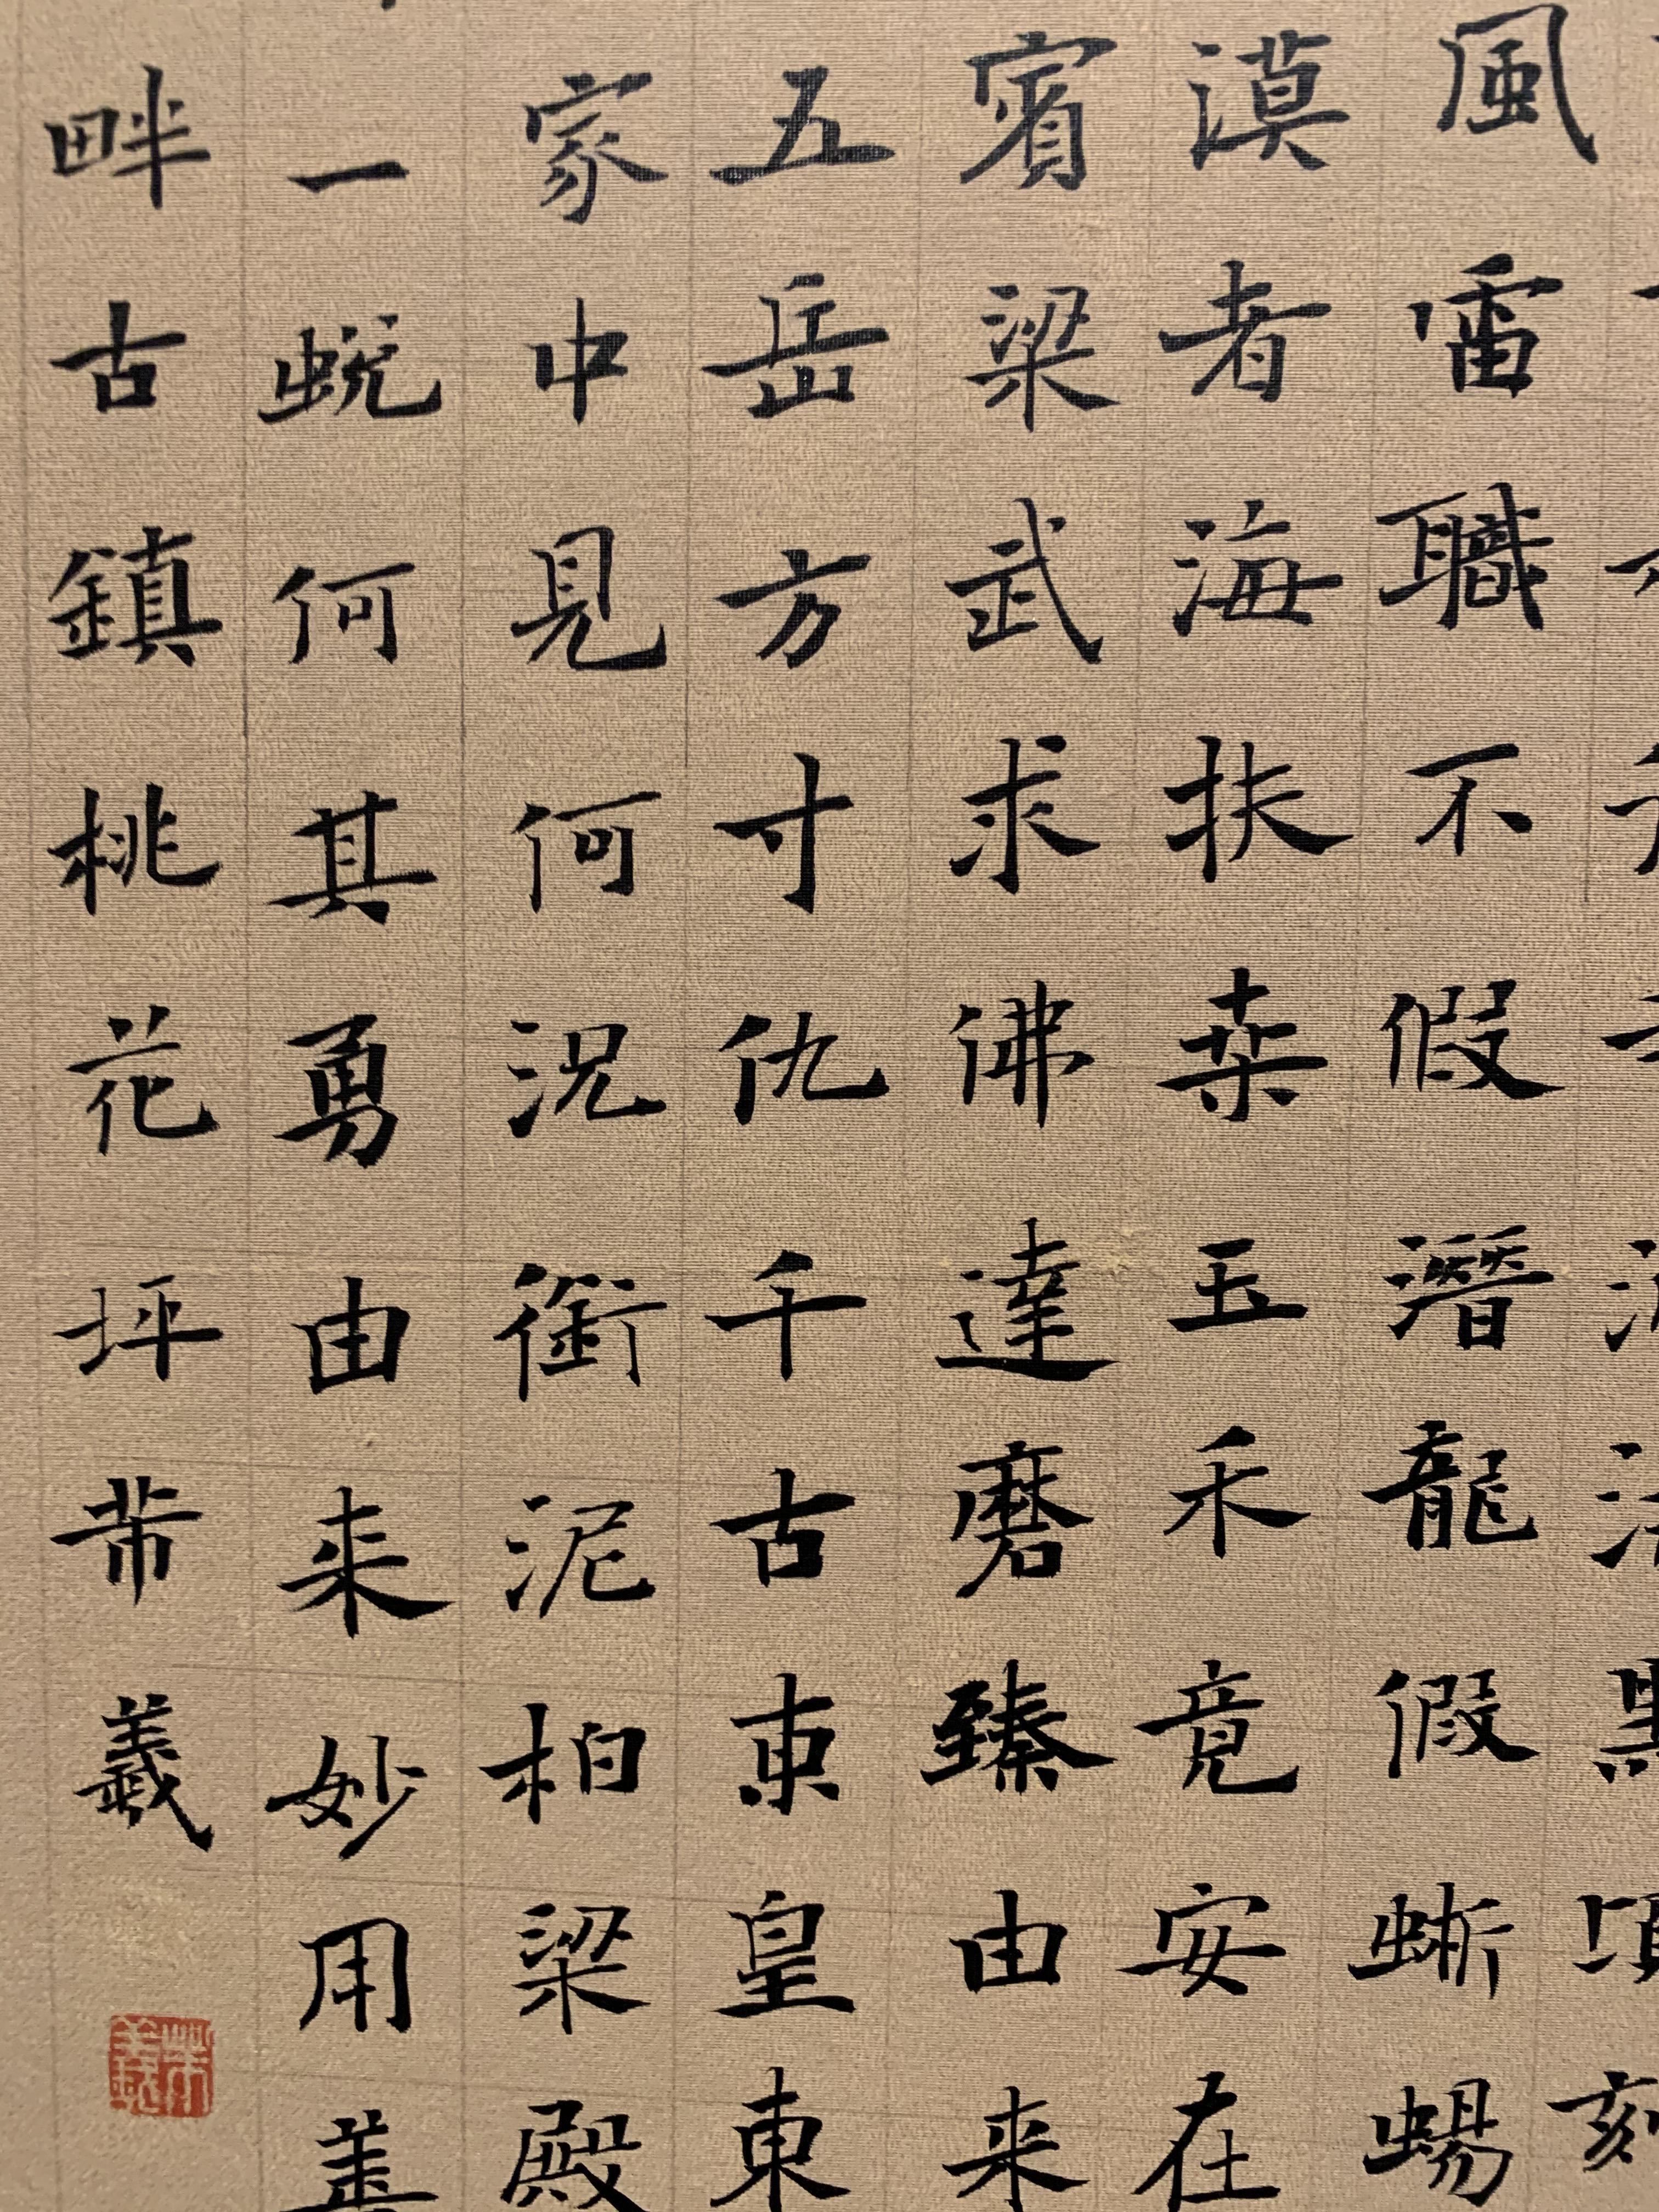 風雷職不假潛龍假蜥蜴
漠者海扶桒玉禾竟安在
賓梁武求佛達磨臻由来
五岳方寸仇千古東皇東
家中見何況銜泥柏梁殿
一蛻何其勇由来妙用善
畔古鎮桃花坪芾羲